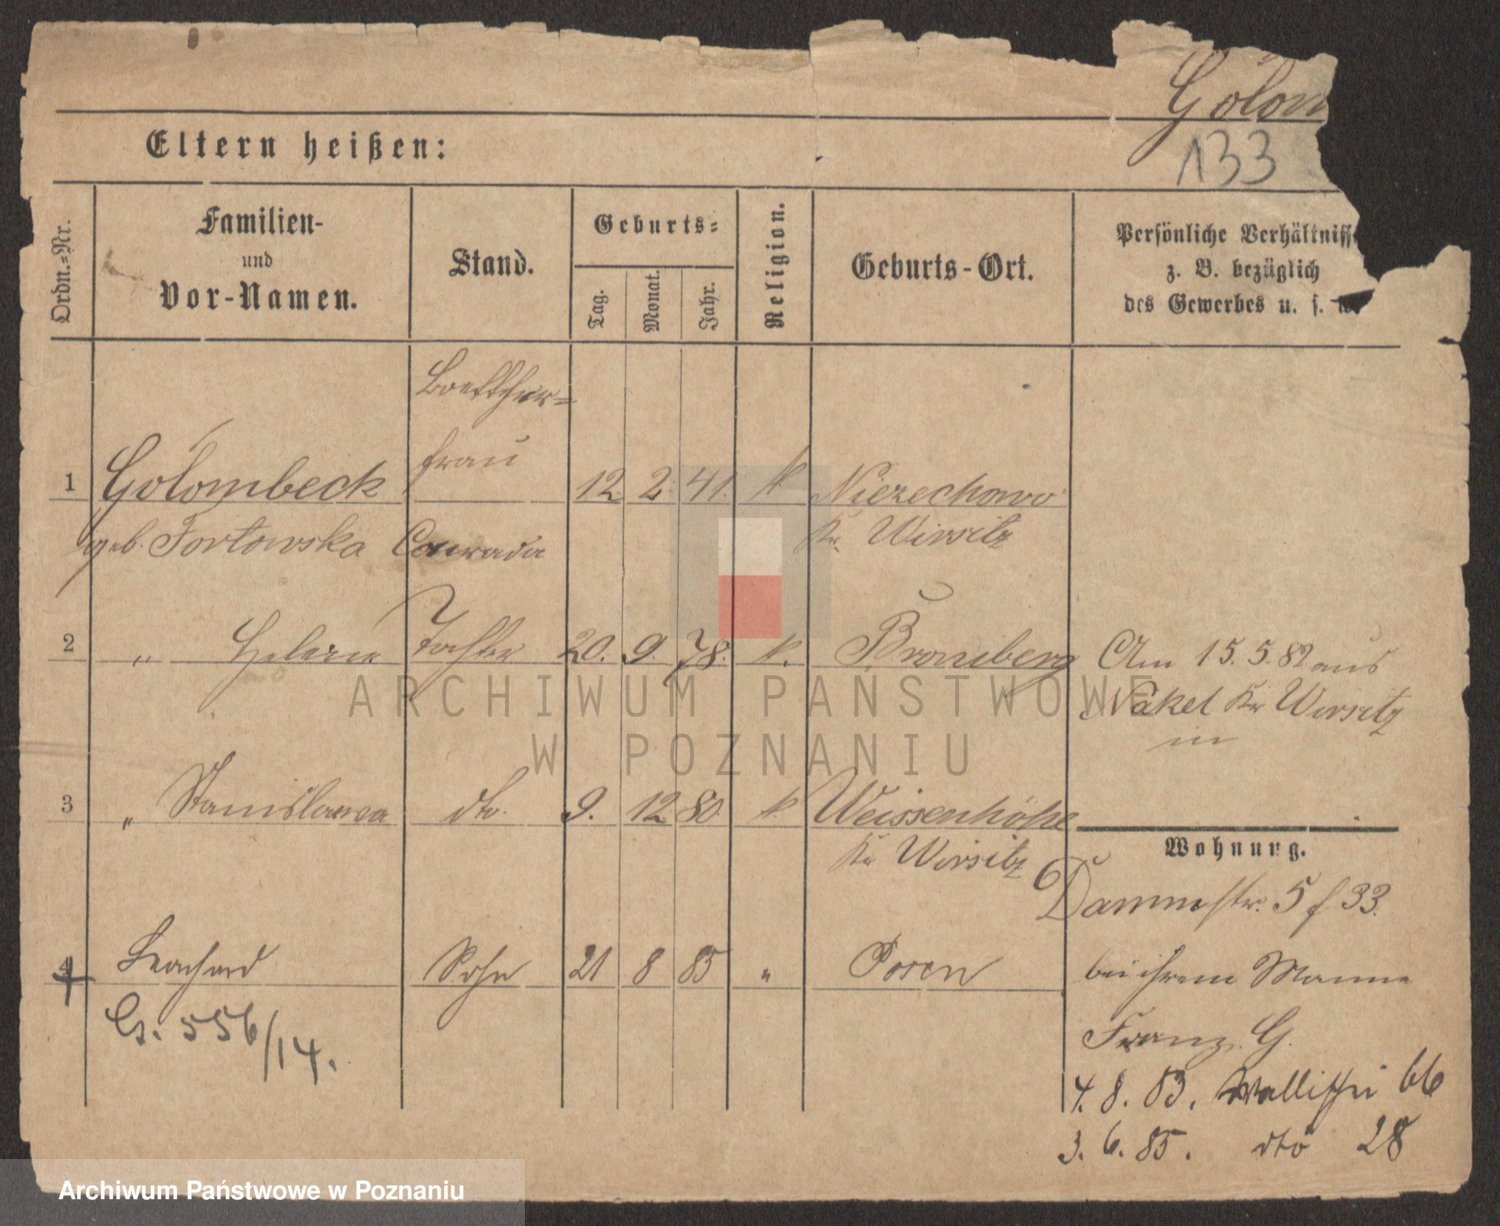 Golom
133
Eltern heißen:
Ordn.-Nr.
Familien-
und
Vor-Namen.
Stand.
Geburts-
Tag.
Monat.
Jahr.
Religion.
Geburts-Ort.
Persönliche Verhältniss
z. B. bezüglich
des Gewerbes u. s. w.
Boettcher-
frau
1 Golombeck 12 2 41. k Niezechowo
geb. Tortowska Conrada Kr. Wirsitz
2 " Helene Tochter 20. 9. 78. k. Bromberg
Am 15. 5. 82 aus
Nakel Kr Wirsitz
in
3 " Stanislawa dto. 9. 12 80 k. Weissenhöhe
Kr Wirsitz
Wohnung.
6
Dammstr. 5 f 33.
4 Leonhard Sohn 21 8 85 " Posen
bei ihrem Manne
Gs. 556/14.
Franz G.
4. 8. 83. Wallischei 66
3. 6. 85. dto 28
ARCHIWUM PAŃSTWOWE
W POZNANIU
Archiwum Państwowe w Poznaniu